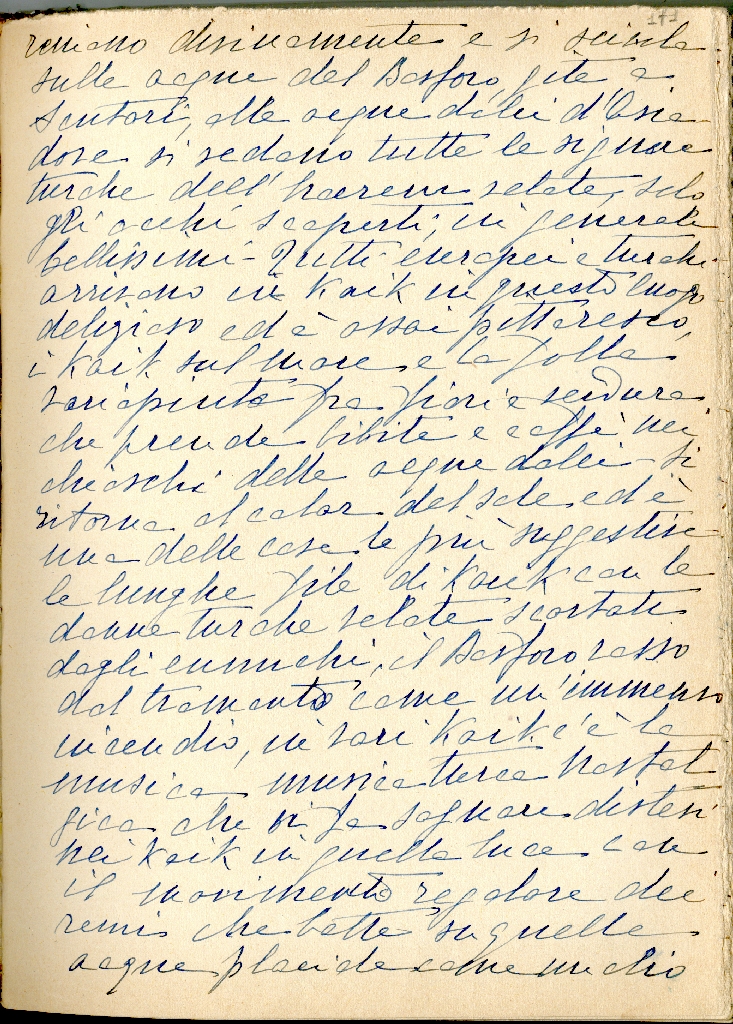 171
remano divinamente e si scivola
sulle acque del Bosforo, gite a
Scutari, alle acque dolci d'Asia
dove si vedono tutte le signore
turche dell'harem velate, solo
gli occhi scoperti, in generale
bellissimi - Tutti europei e turchi
arrivano in Kaik in questo luogo
delizioso ed è assai pittoresco,
i Kaik sul mare e la folla
variopinta fra fiori e verdura
che prende bibite e caffè nei
chioschi delle acque dolci - si
ritorna al calar del sole ed è
una delle cose le più suggestive
le lunghe file di Kaik con le
donne turche velate scortate
dagli eunuchi, il Bosforo rosso
dal tramonto come un'immenso
incendio, in vari Kaik c'è la
musica musica turca nostal
gica che vi fa sognare distesi
nei Kaik in quella luce con
il movimento regolare dei
remi che batte su quelle
acque placide come un olio